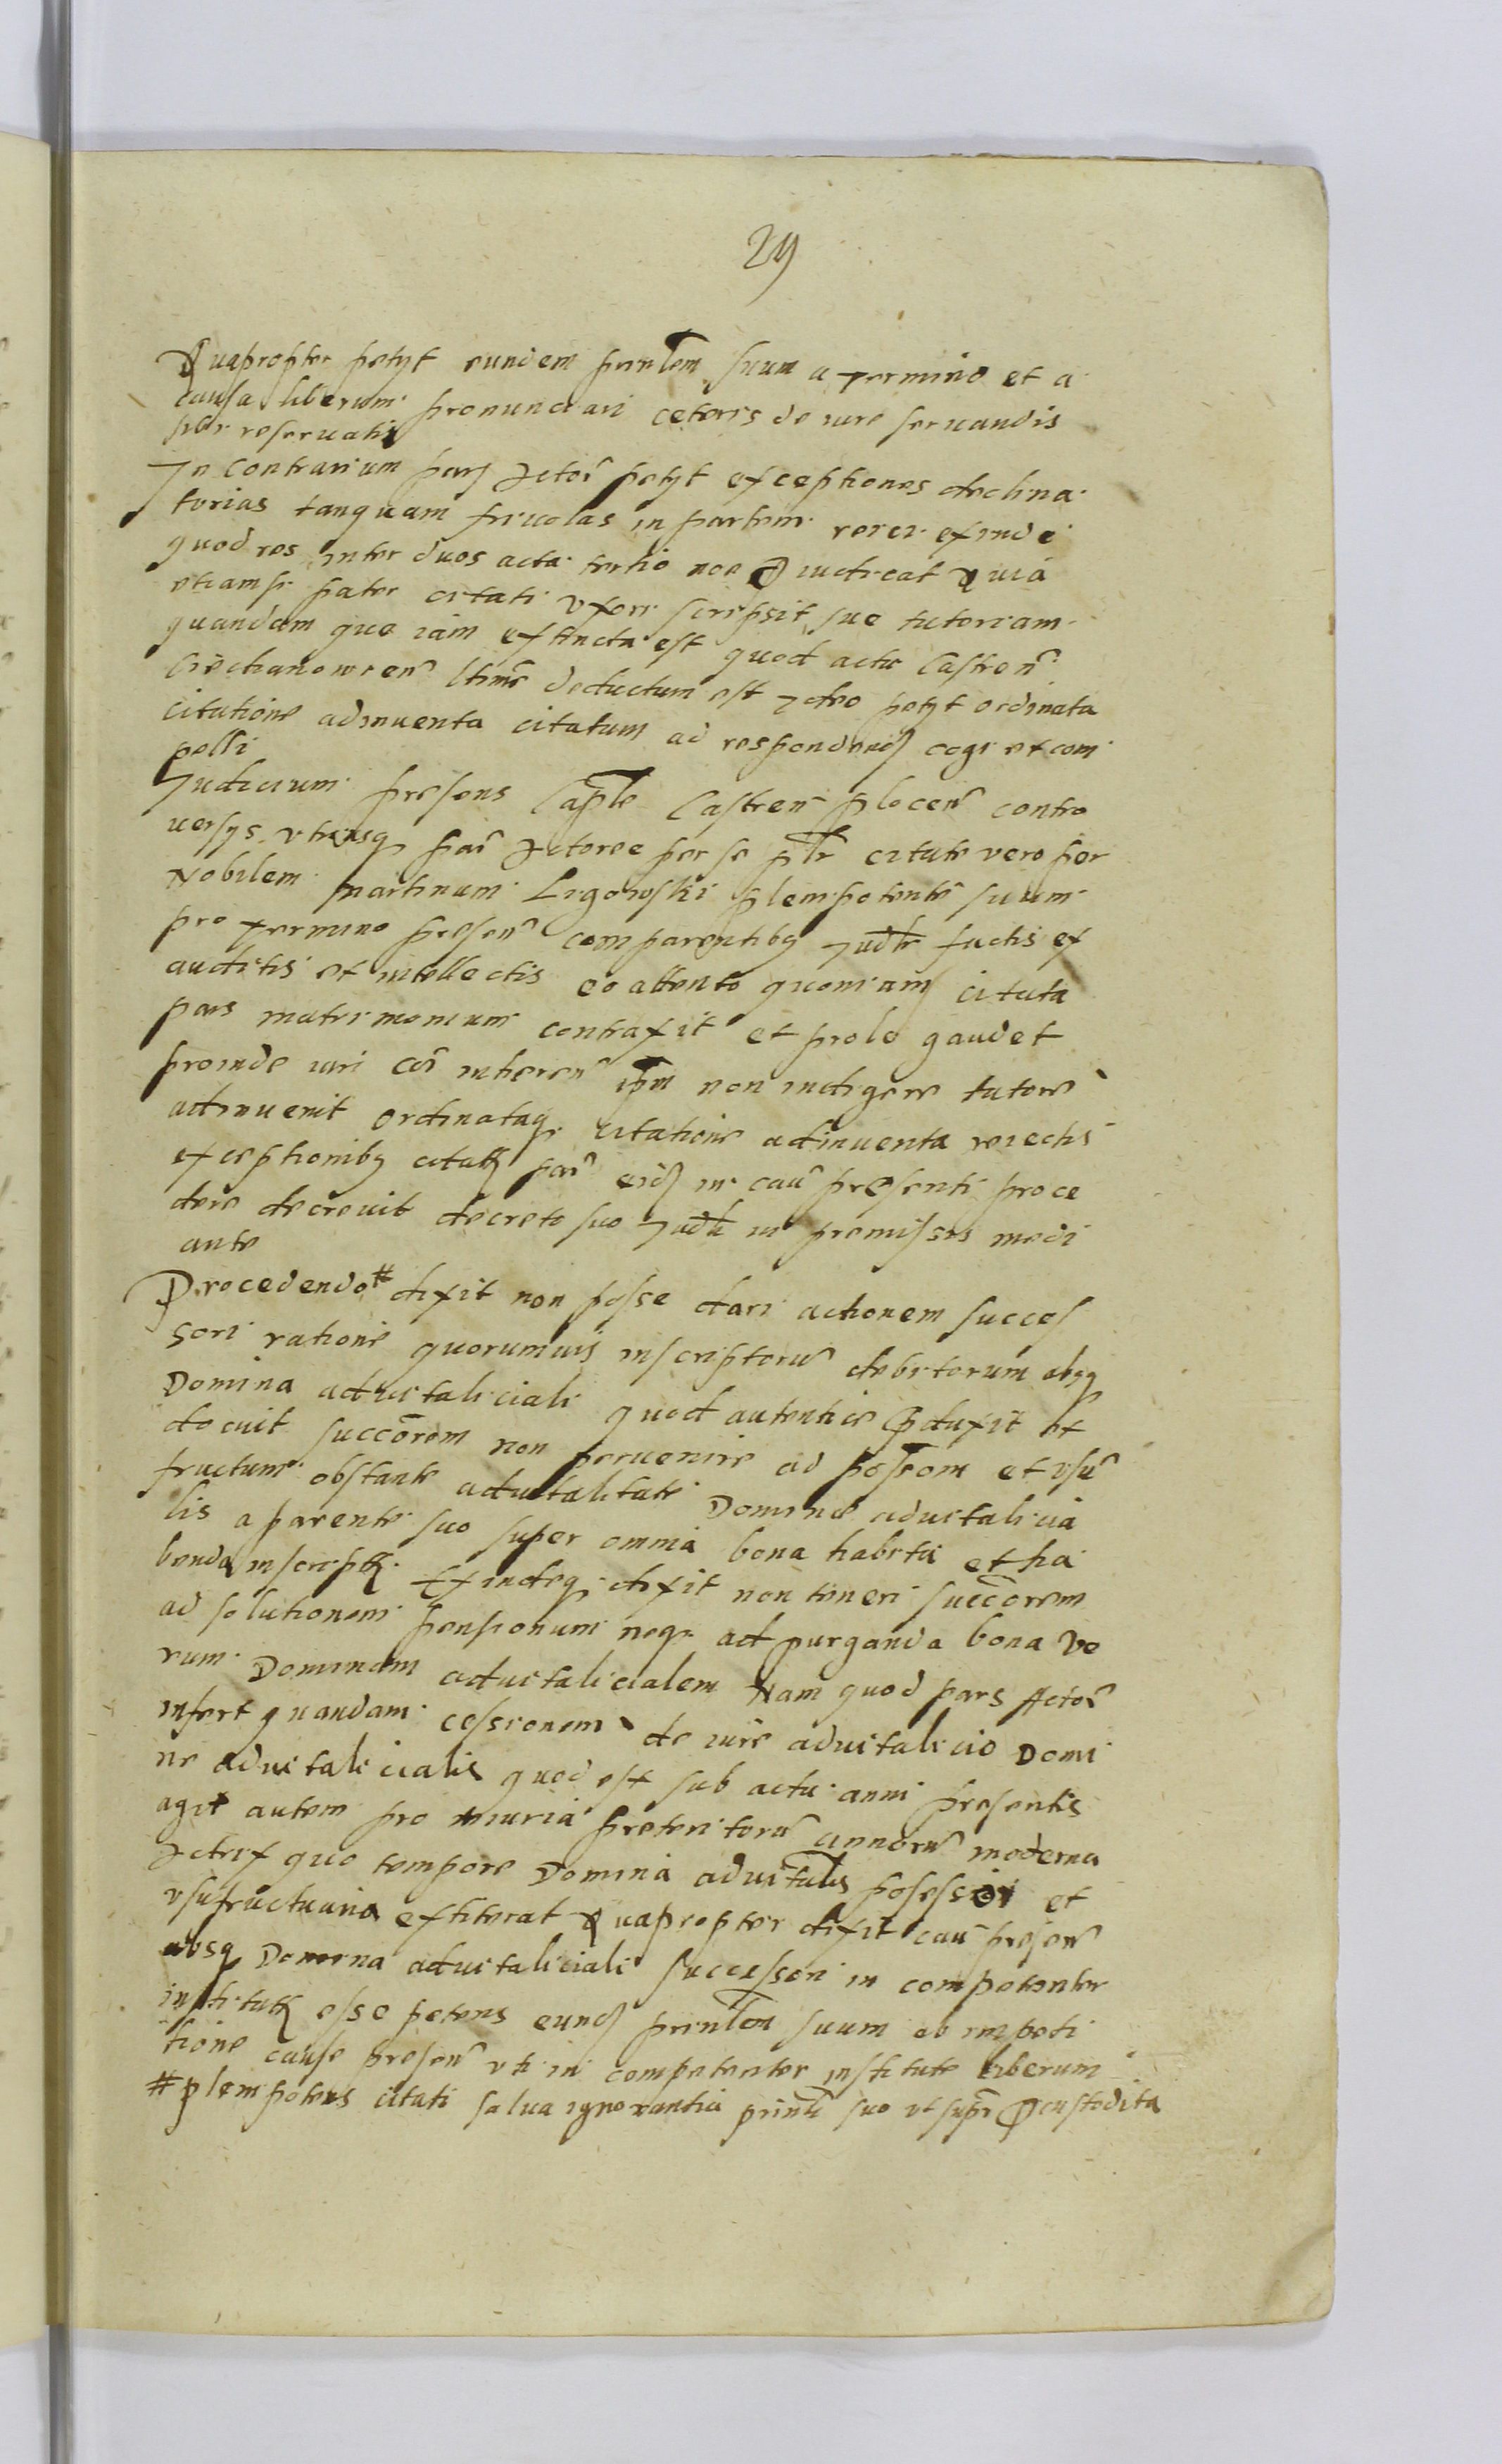 29
Quapropter petyt eundem prinlem suum a termino et a
causa liberum pronunctiari ceteris de iure seruandis
sibi reseruatis
In contrarium pars Actor petyt exceptiones declina
torias tanquam friuolas in partem reici exinde
quod res inter duos acta tertio non piudicat Quia
etiamsi pater citati uxori scripsit sue tutoriam
quandam que iam extincta est quod actis Castren
Ciechanowien ltime deductum est Ideo petyt ordinata
citatione adinuenta citatum ad respondend cogi et com
pelli
Iudicium presens Caple Castren plocen contro
uersys utriusq par Actoree per se plr citate vero per
Nobilem Martinum Ligowski plenipotente suum
pro termino presen comparentibq Iudlr factis ex
auditis et intellectis eo attento quoniam citata
pars matrimonium contraxit et prole gaudet
proinde iuri coi inheren ipm non indigere tutore
adinuenit ordinataq citatione adinuenta reiectis
exceptionibq citate par eid in cau presenti proce
dere decreuit decreto suo Iudli in premissis medi
ante
Procedendo# dixit non posse dari actionem succes
sori ratione quorumuis inscriptoru debitorum absq
Domina aduitaliciali quod autentice pduxit et
docuit succorem non peruenire ad possiom et usu
fructum obstante aduitalitate Domine aduitalicia
lis a parente suo super omnia bona habita et ha
benda inscripte Exindeq dixit non teneri succorem
ad solutionem pensionum neq ad purganda bona ve
rum Dominam aduitalicialem Nam quod pars Actor
infert quandam cessionem de iure aduitalicio Domi
ne aduitalicialis quod est sub actu anni presentis
agit autem pro iniuria preteritoru annoru moderna
Actrix quo tempore Domina aduitalis possessor et
usufructuaria extiterat Quapropter dixit cau presen
absq Domina aduitaliciali successori in competenter
institutt esse petens eund prinlem suum ab impeti
tione cause presen uti in competenter institute liberum
# plenipotens citati salua ignorantia prinli suo ut supr pcustodita